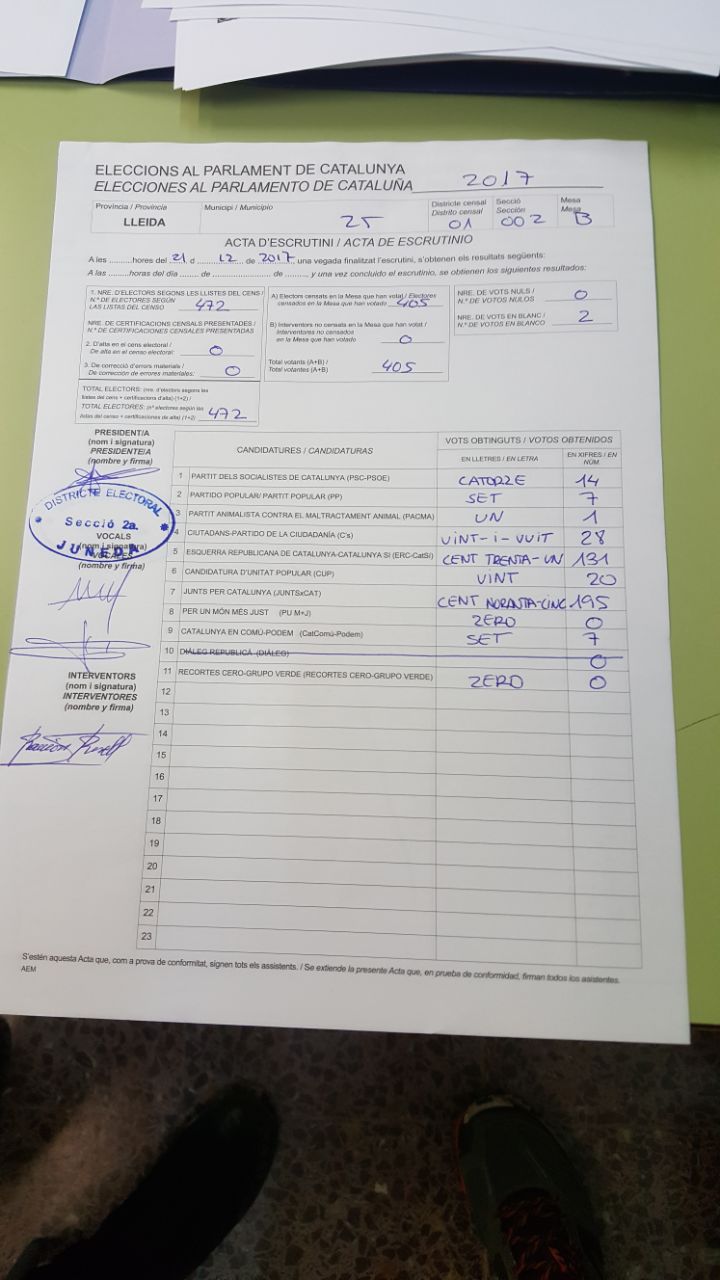 ELECCIONS AL PARLAMENT DE CATALUNYA
ELECCIONES AL PARLAMENTO DE CATALUÑA 2017
Província / Provincia
LLEIDA
Municipi / Municipio
25
Districte censal
Distrito censal
01
Secció
Sección
002
Mesa
Mesa
B
ACTA D'ESCRUTINI / ACTA DE ESCRUTINIO
A les ..........hores del 21 d .......12..... de 2017, una vegada finalitzat l'escrutini, s'obtenen els resultats següents:
A las .......horas del día ....... de ....................... de ........, y una vez concluido el escrutinio, se obtienen los siguientes resultados:
1. NRE. D'ELECTORS SEGONS LES LLISTES DEL CENS /
N.º DE ELECTORES SEGÚN
LAS LISTAS DEL CENSO 472
NRE. DE CERTIFICACIONS CENSALS PRESENTADES /
N.º DE CERTIFICACIONES CENSALES PRESENTADAS
2. D'alta en el cens electoral /
De alta en el censo electoral: 0
3. De correcció d'errors materials /
De corrección de errores materiales: 0
TOTAL ELECTORS: (nre. d'electors segons les
llistes del cens + certificacions d'alta) (1+2) /
TOTAL ELECTORES: (nº electores según las
listas del censo + certificaciones de alta) (1+2) 472
A) Electors censats en la Mesa que han votat / Electores
censados en la Mesa que han votado 405
B) Interventors no censats en la Mesa que han votat /
Interventores no censados
en la Mesa que han votado 0
Total votants (A+B) /
Total votantes (A+B) 405
NRE. DE VOTS NULS /
N.º DE VOTOS NULOS 0
NRE. DE VOTS EN BLANC /
N.º DE VOTOS EN BLANCO 2
PRESIDENT/A
(nom i signatura)
PRESIDENTE/A
(nombre y firma)
DISTRICTE ELECTORAL
Secció 2a.
JUNEDA
VOCALS
(nom i signatura)
VOCALES
(nombre y firma)
INTERVENTORS
(nom i signatura)
INTERVENTORES
(nombre y firma)
CANDIDATURES / CANDIDATURAS
VOTS OBTINGUTS / VOTOS OBTENIDOS
EN LLETRES / EN LETRA
EN XIFRES / EN NÚM.
1 PARTIT DELS SOCIALISTES DE CATALUNYA (PSC-PSOE) CATORZE 14
2 PARTIDO POPULAR/ PARTIT POPULAR (PP) SET 7
3 PARTIT ANIMALISTA CONTRA EL MALTRACTAMENT ANIMAL (PACMA) UN 1
4 CIUTADANS-PARTIDO DE LA CIUDADANÍA (C's) VINT-I-VUIT 28
5 ESQUERRA REPUBLICANA DE CATALUNYA-CATALUNYA SI (ERC-CatSI) CENT TRENTA-UN 131
6 CANDIDATURA D'UNITAT POPULAR (CUP) VINT 20
7 JUNTS PER CATALUNYA (JUNTSxCAT) CENT NORANTA-CINC 195
8 PER UN MÓN MÉS JUST (PU M+J) ZERO 0
9 CATALUNYA EN COMÚ-PODEM (CatComú-Podem) SET 7
10 DIÀLEG REPUBLICÀ (DIÀLEG) 0
11 RECORTES CERO-GRUPO VERDE (RECORTES CERO-GRUPO VERDE) ZERO 0
12
13
14
15
16
17
18
19
20
21
22
23
S'estén aquesta Acta que, com a prova de conformitat, signen tots els assistents. / Se extiende la presente Acta que, en prueba de conformidad, firman todos los asistentes.
AEM